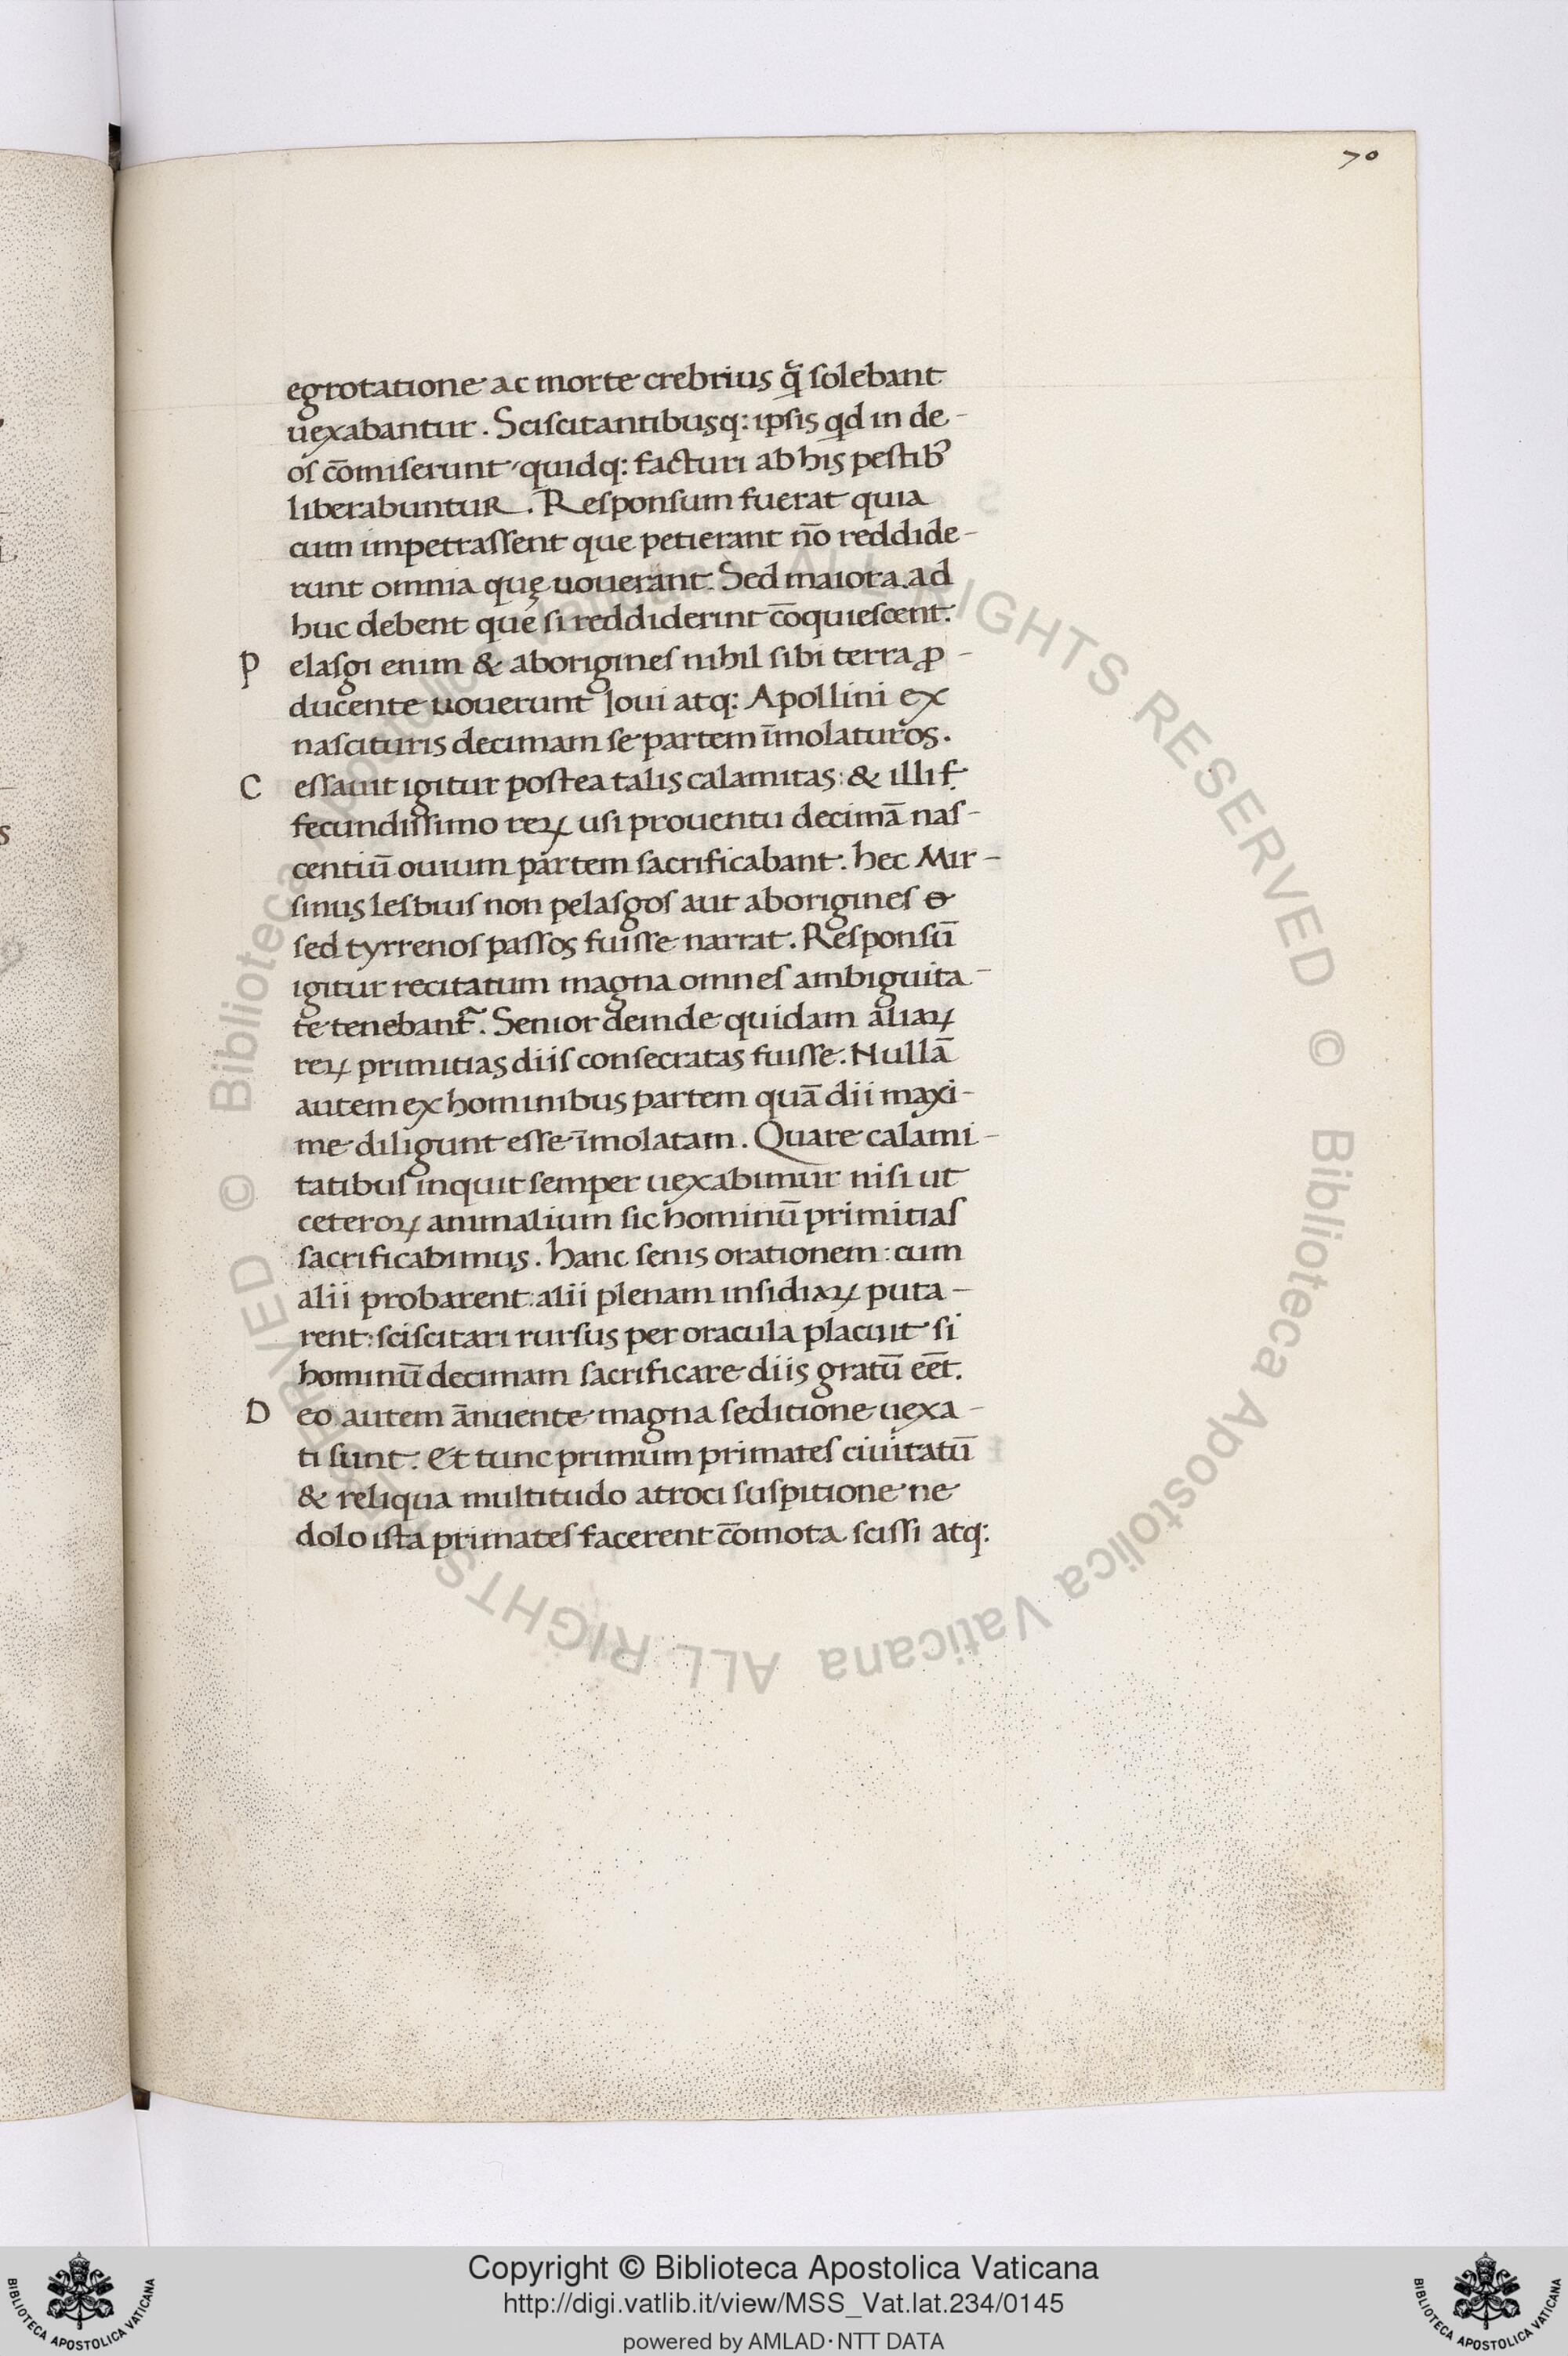 70
egrotatione ac morte crebrius q̃ solebant
uexabantur. Sciscitantibusq: ipsis qd in de-
os cōmiserunt, quidq: facturi ab his pestib⁹
liberabuntur. Responsum fuerat quia
cum impetrassent que petierant nō reddide-
runt omnia quę uouerant. Sed maiora ad
huc debent que si reddiderint cōquiescent.
Pelasgi enim & aborigines nihil sibi terra ꝓ-
ducente uouerunt Ioui atq: Apollini ex
nascituris decimam se partem īmolaturos.
Cessauit igitur postea talis calamitas: & illi f̣
fecundissimo reꝝ usi prouentu decimā nas-
centiū ouium partem sacrificabant. hec Mir-
sinus Lesbius non pelasgos aut aborigines
sed tyrrenos passos fuisse narrat. Responsū
igitur recitatum magna omnes ambiguita-
te tenebant᷒. Senior deinde quidam aliaꝝ
reꝝ primitias diis consecratas fuisse. Nullā
autem ex hominibus partem quā dii maxi-
me diligunt esse īmolatam. Quare calami-
tatibus inquit semper uexabimur nisi ut
ceteroꝝ animalium sic hominū primitias
sacrificabimus. hanc senis orationem: cum
alii probarent: alii plenam insidiaꝝ puta-
rent: sciscitari rursus per oracula placuit si
hominū decimam sacrificare diis gratū eēt.
Deo autem ānuente magna seditione uexa-
ti sunt. Et tunc primum primates ciuitatū
& reliqua multitudo atroci suspitione ne
dolo ista primates facerent cōmota scissi atq:
© Biblioteca Apostolica Vaticana ALL RIGHTS RESERVED © Biblioteca Apostolica Vaticana ALL RIGHTS RESERVED
BIBLIOTECA APOSTOLICA VATICANA
Copyright © Biblioteca Apostolica Vaticana
http://digi.vatlib.it/view/MSS_Vat.lat.234/0145
powered by AMLAD·NTT DATA
BIBLIOTECA APOSTOLICA VATICANA